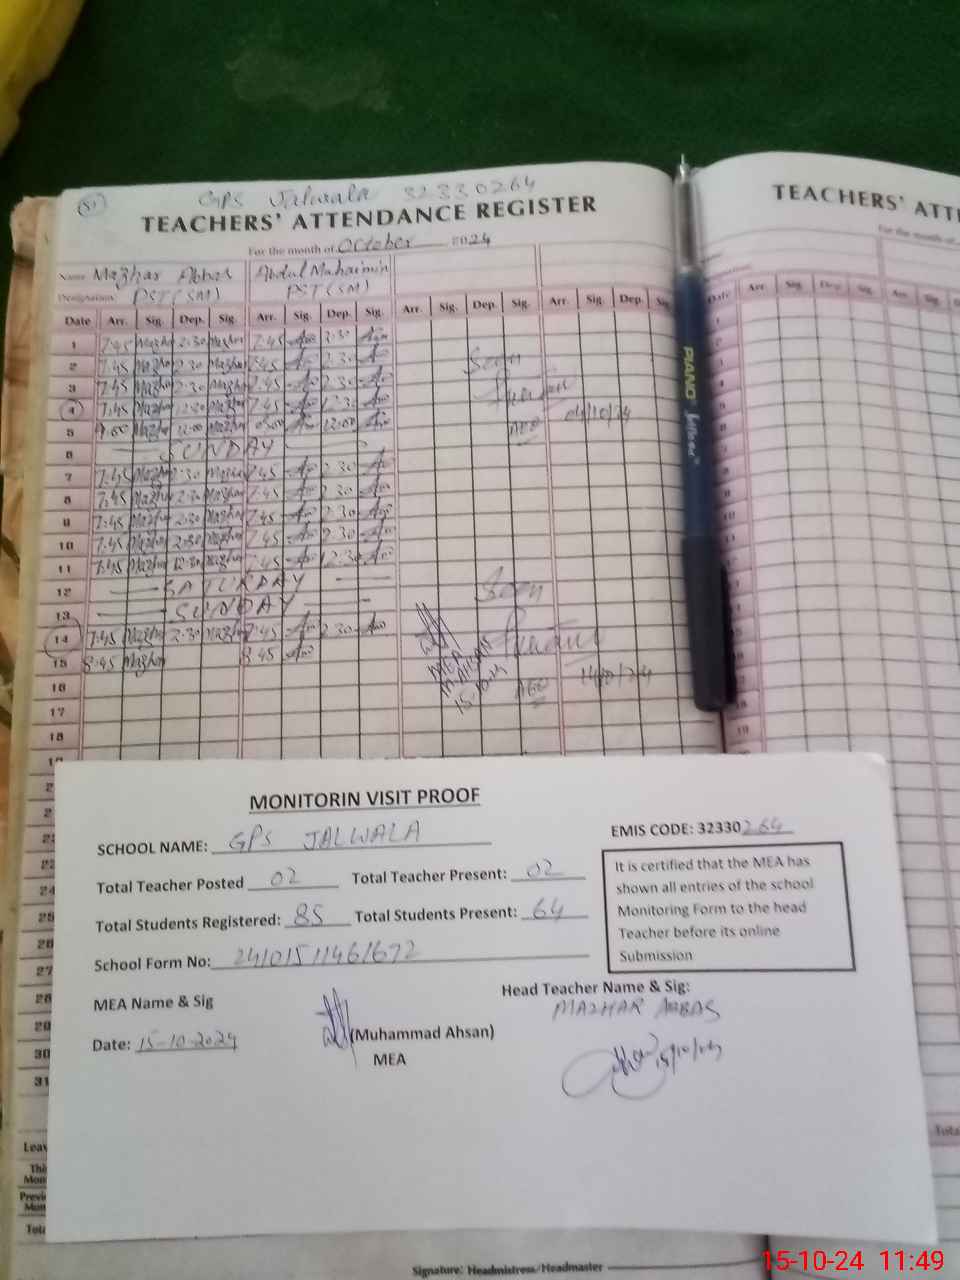 51 GPS Jalwala 32330264
TEACHERS' ATTENDANCE REGISTER
For the month of October 2024
Name Mazhar Abbas Abdul Muhaimin
Designation PST (SM) PST (SM)
Date Arr. Sig. Dep. Sig. Arr. Sig. Dep. Sig. Arr. Sig. Dep. Sig. Arr. Sig. Dep. Sig.
1 7:45 Mazhar 2:30 Mazhar 7:45 2:30
2 7:45 Mazhar 2:30 Mazhar 2:30 Seen
3 7:45 Mazhar 2:30 Mazhar 7:45 2:30
4 7:45 Mazhar 12:30 Mazhar 7:45 12:30 04/10/24
5 Mazhar 12:00 Mazhar 12:00 AEO
6 SUNDAY
7 7:45 Mazhar 2:30 Mazhar 7:45 2:30
8 7:45 Mazhar 2:30 Mazhar 7:45 2:30
9 7:45 Mazhar 2:30 Mazhar 7:45 2:30
10 7:45 Mazhar 2:30 Mazhar 7:45 2:30
11 7:45 Mazhar 12:30 Mazhar 7:45 12:30
12 SATURDAY Seen
13 SUNDAY
14 7:45 Mazhar 2:30 Mazhar 7:45 2:30
15 8:45 Mazhar 8:45 MEA
16 M. AHSAN AEO 14/10/24
17 15-10-24
18
19
MONITORIN VISIT PROOF
SCHOOL NAME: GPS JALWALA EMIS CODE: 32330264
Total Teacher Posted 02 Total Teacher Present: 02
Total Students Registered: 85 Total Students Present: 64
School Form No: 24101511461672
It is certified that the MEA has
shown all entries of the school
Monitoring Form to the head
Teacher before its online
Submission
MEA Name & Sig Head Teacher Name & Sig:
MAZHAR ABBAS
(Muhammad Ahsan)
Date: 15-10-2024 MEA 15/10/24
22
23
24
25
26
27
28
29
30
31
Signature: Headmistress/Headmaster
TEACHERS' ATTE
For the month of
Date Arr. Sig. Dep. Sig. Arr. Sig.
PIANO
15-10-24 11:49